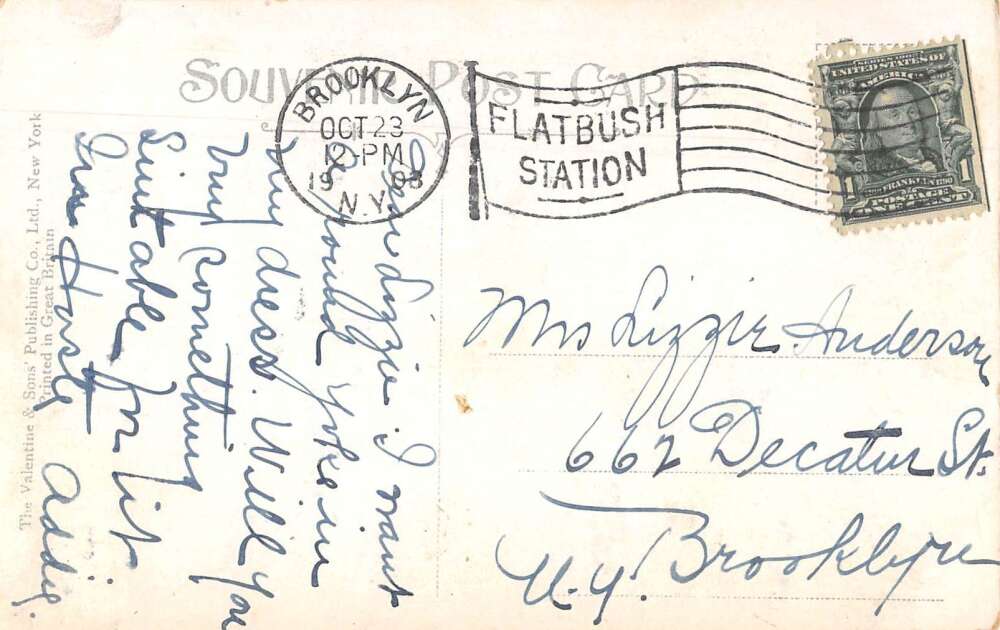 SOUVENIR POST CARD
BROOKLYN
OCT 23
12-PM
1908
N.Y.
FLATBUSH
STATION
UNITED STATES OF
AMERICA
FRANKLIN
POSTAGE
1 ONE CENT 1
Mrs Lizzie Anderson
662 Decatur St.
Brooklyn
N.Y.
Dear Lizzie I want
a round yoke in
my dress. Will you
buy something
Suitable for it
In a Haste Addie.
The Valentine & Sons' Publishing Co., Ltd., New York
Printed in Great Britain